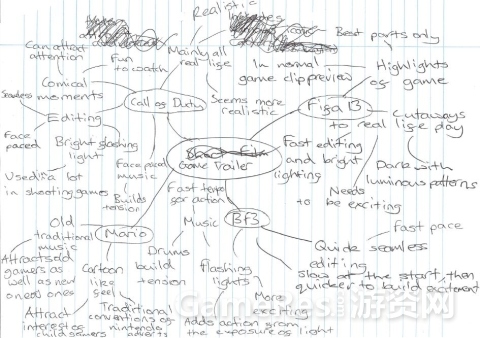 Realistic
Can attract
attention
Fun
to watch
Mainly all
real life
Best parts only
In normal
game clip preview
Highlights
of game
Comical
moments
Call of Duty
Seems more
realistic
Fifa 13
Seamless
Editing
Cutaways
to real life play
Face
paced
Bright flashing
light
Game Trailer
Fast editing
and bright
lighting
Face paced
music
Dark with
luminous patterns
Used in a lot
in shooting games
Builds
tension
Fast tempo
for action
Needs
to be exciting
Old
traditional
music
Mario
Music
Bf3
Fast pace
Quick seamless
editing
Attracts old
gamers as
well as new
ones
Cartoon
like
feel
Drums
build
tension
flashing
lights
slow at the start, then
quicker to build excitement
Attract
interest of
child gamers
Traditional
conventions of
nintendo
adverts
More
exciting
Adds action from
the exposure of light
GameRes游资网